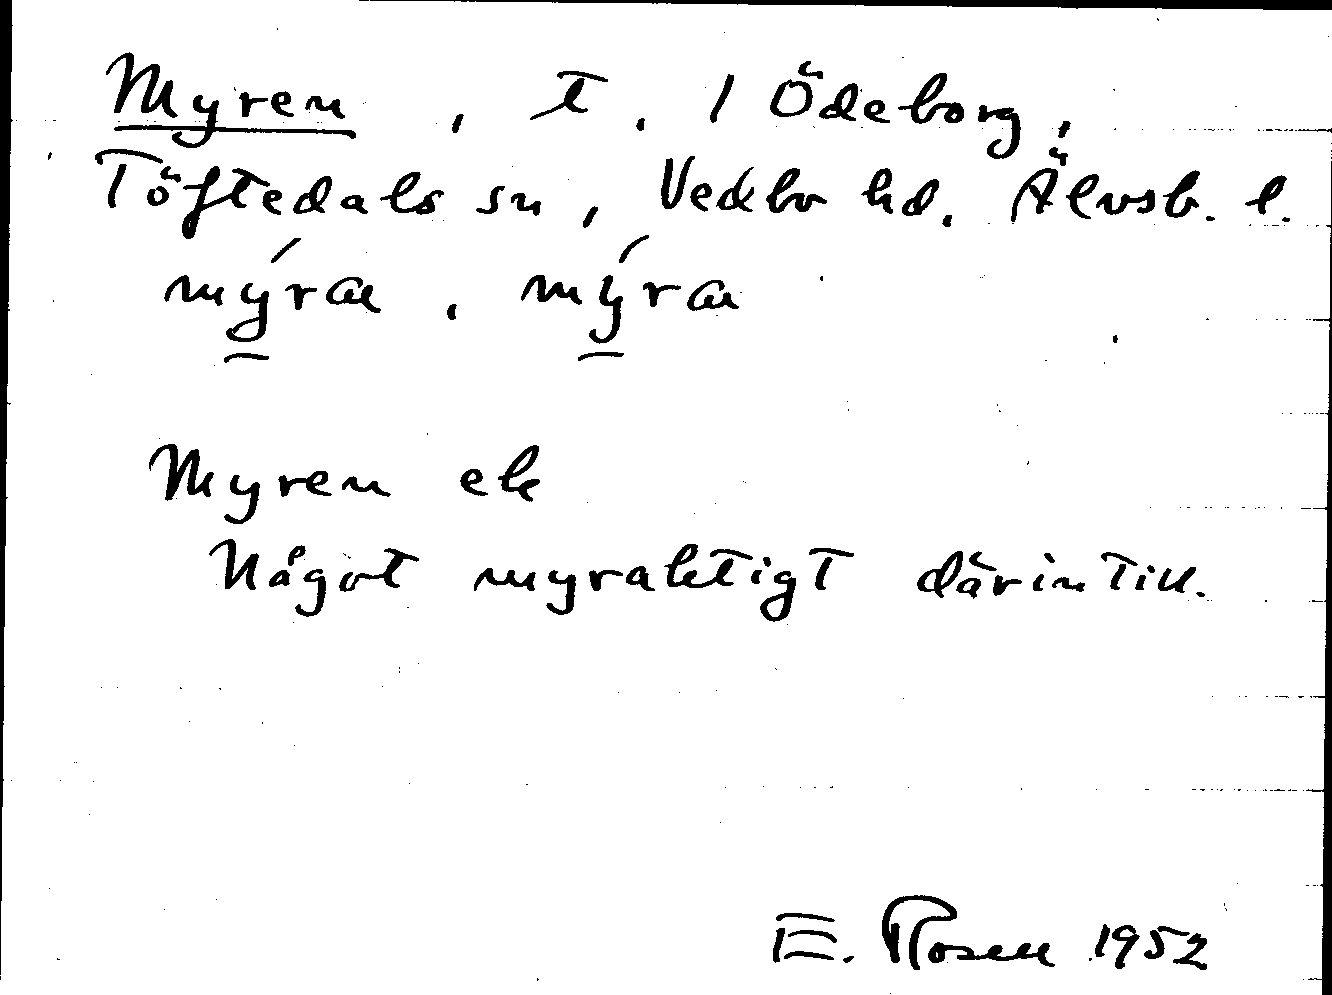 Myren, t. 1 Ödeborg,
Töftedals sn, Vedbo hd. Älvsb. l.
mýra, mýra
Myren ek
Något myraktigt därintill.
E. Rosen 1952